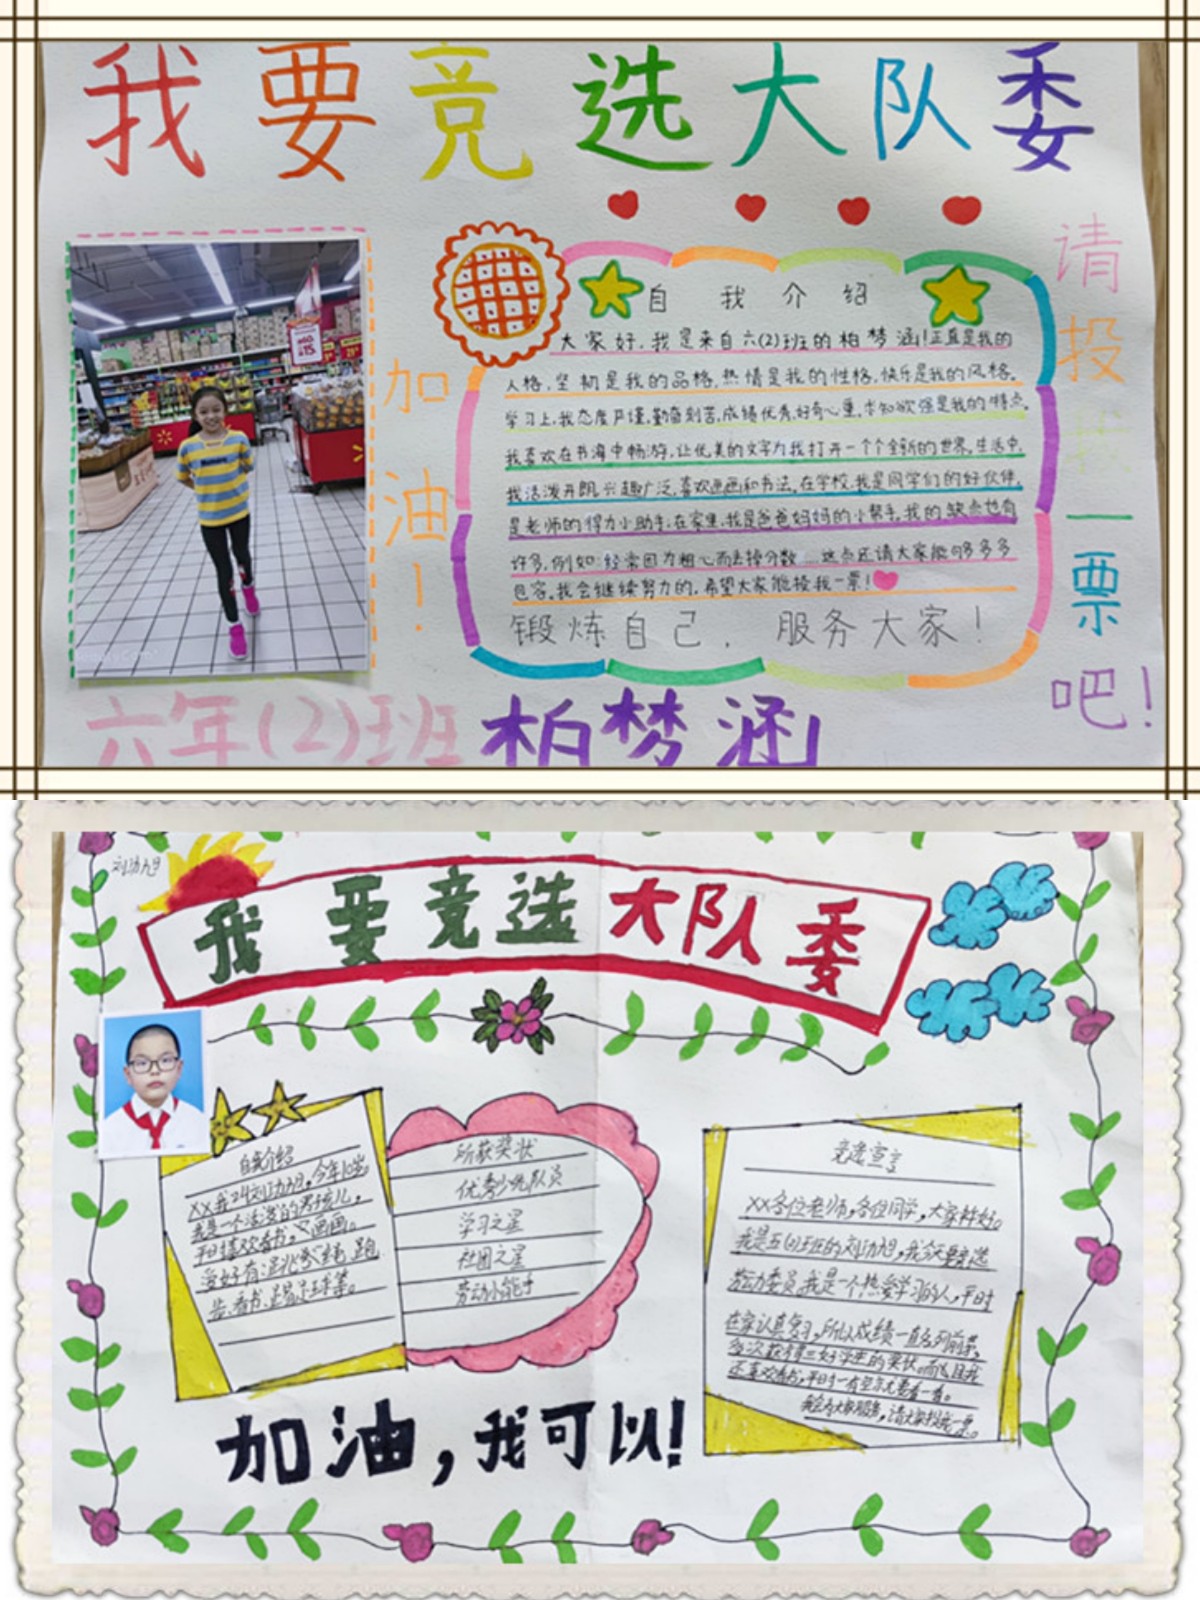 我要竞选大队委
自我介绍
大家好,我是来自六(2)班的柏梦涵!正直是我的
人格,坚韧是我的品格,热情是我的性格,快乐是我的风格。
学习上,我态度严谨,勤奋刻苦,成绩优秀,好奇心重,求知欲强是我的特点。
我喜欢在书海中畅游,让优美的文字为我打开一个个全新的世界。生活中,
我活泼开朗,兴趣广泛,喜欢画画和书法。在学校,我是同学们的好伙伴,
是老师的得力小助手;在家里,我是爸爸妈妈的小帮手。我的缺点也有
许多,例如:经常因为粗心而丢掉分数……这点还请大家能够多多多
包容。我会继续努力的,希望大家能投我一票!
锻炼自己,服务大家!
加油!
请投我一票吧!
六年(2)班柏梦涵
我要竞选大队委
自我介绍
我是一个活泼的男孩儿,
平日喜欢看书、画画。
所获奖状
优秀少先队员
学习之星
社团之星
劳动小能手
竞选宣言
XX各位老师,各位同学,大家好。
劳动委员,我是一个热爱学习的人,平时
在家认真复习,所以成绩一直名列前茅,
多次获得三好学生的奖状。而且我
还喜欢看书,平时一有空就要看一看。
我会为大家服务,请大家投我一票。
加油,我可以!